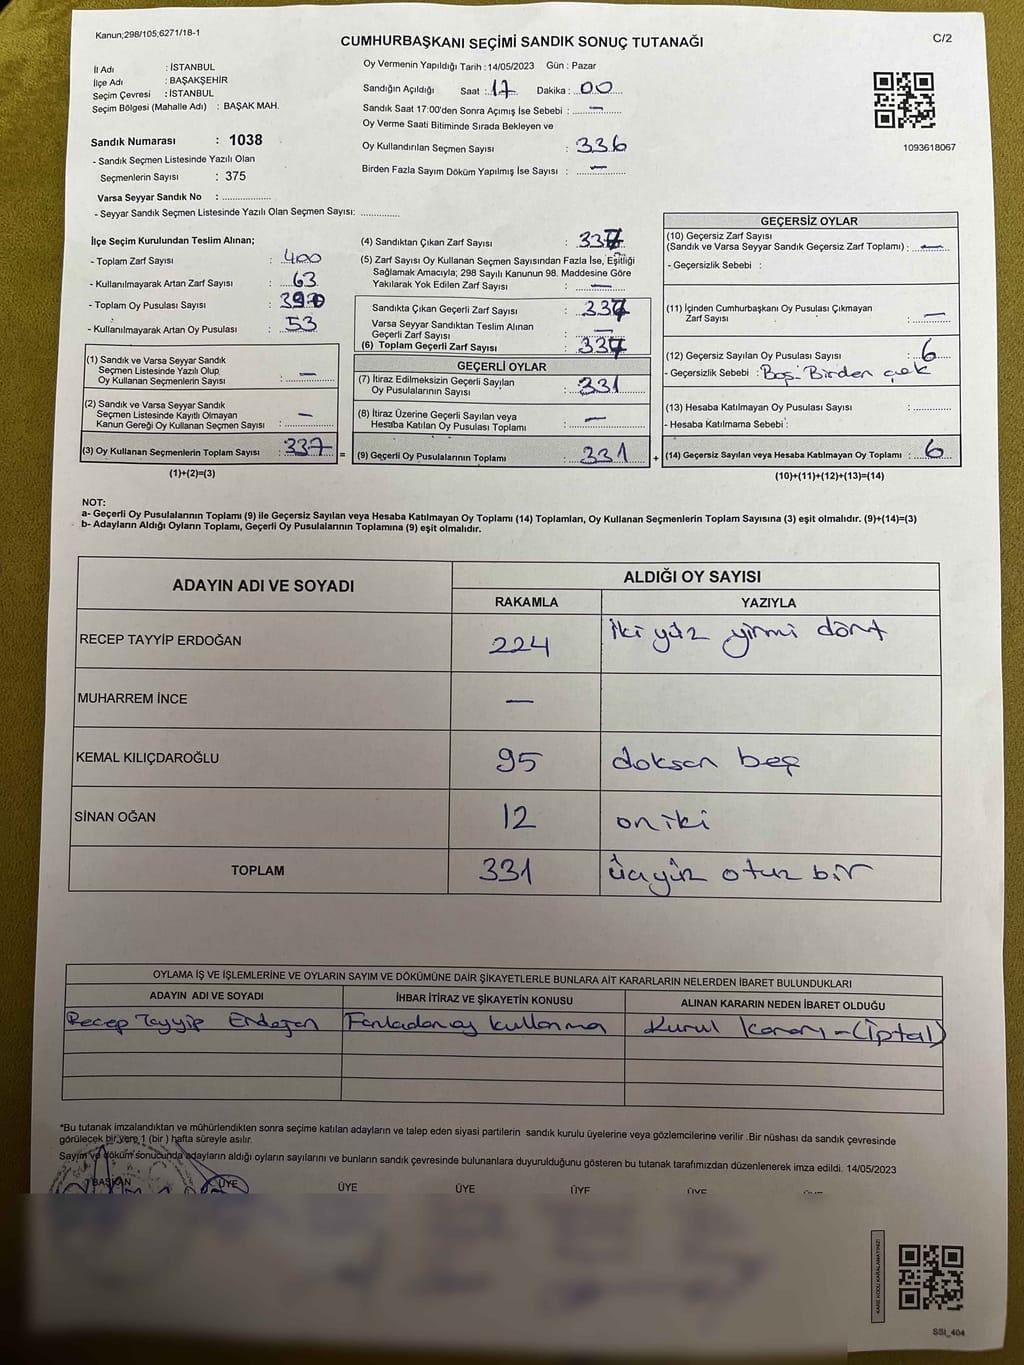 Kanun;298/105;6271/18-1
CUMHURBAŞKANI SEÇİMİ SANDIK SONUÇ TUTANAĞI
C/2
İl Adı : İSTANBUL
İlçe Adı : BAŞAKŞEHİR
Seçim Çevresi : İSTANBUL
Seçim Bölgesi (Mahalle Adı) : BAŞAK MAH.
Sandık Numarası : 1038
- Sandık Seçmen Listesinde Yazılı Olan
Seçmenlerin Sayısı : 375
Varsa Seyyar Sandık No : ..................
- Seyyar Sandık Seçmen Listesinde Yazılı Olan Seçmen Sayısı: .............
Oy Vermenin Yapıldığı Tarih : 14/05/2023 Gün : Pazar
Sandığın Açıldığı Saat : 17 Dakika : 00
Sandık Saat 17:00'den Sonra Açımış İse Sebebi : —
Oy Verme Saati Bitiminde Sırada Bekleyen ve
Oy Kullandırılan Seçmen Sayısı : 336
Birden Fazla Sayım Döküm Yapılmış İse Sayısı : —
1093618067
İlçe Seçim Kurulundan Teslim Alınan;
- Toplam Zarf Sayısı : 400
- Kullanılmayarak Artan Zarf Sayısı : 63
- Toplam Oy Pusulası Sayısı : 390
- Kullanılmayarak Artan Oy Pusulası : 53
(1) Sandık ve Varsa Seyyar Sandık
Seçmen Listesinde Yazılı Olup
Oy Kullanan Seçmenlerin Sayısı : —
(2) Sandık ve Varsa Seyyar Sandık
Seçmen Listesinde Kayıtlı Olmayan
Kanun Gereği Oy Kullanan Seçmen Sayısı : —
(3) Oy Kullanan Seçmenlerin Toplam Sayısı : 337 =
(1)+(2)=(3)
(4) Sandıktan Çıkan Zarf Sayısı : 337
(5) Zarf Sayısı Oy Kullanan Seçmen Sayısından Fazla İse, Eşitliği
Sağlamak Amacıyla; 298 Sayılı Kanunun 98. Maddesine Göre
Yakılarak Yok Edilen Zarf Sayısı : —
Sandıkta Çıkan Geçerli Zarf Sayısı : 337
Varsa Seyyar Sandıktan Teslim Alınan
Geçerli Zarf Sayısı : —
(6) Toplam Geçerli Zarf Sayısı : 337
GEÇERLİ OYLAR
(7) İtiraz Edilmeksizin Geçerli Sayılan
Oy Pusulalarının Sayısı : 331
(8) İtiraz Üzerine Geçerli Sayılan veya
Hesaba Katılan Oy Pusulası Toplamı : —
(9) Geçerli Oy Pusulalarının Toplamı : 331 +
GEÇERSİZ OYLAR
(10) Geçersiz Zarf Sayısı
(Sandık ve Varsa Seyyar Sandık Geçersiz Zarf Toplamı) : —
- Geçersizlik Sebebi :
(11) İçinden Cumhurbaşkanı Oy Pusulası Çıkmayan
Zarf Sayısı : —
(12) Geçersiz Sayılan Oy Pusulası Sayısı : 6
- Geçersizlik Sebebi : Boş-Birden çok
(13) Hesaba Katılmayan Oy Pusulası Sayısı : .............
- Hesaba Katılmama Sebebi :
(14) Geçersiz Sayılan veya Hesaba Katılmayan Oy Toplamı : 6
(10)+(11)+(12)+(13)=(14)
NOT:
a- Geçerli Oy Pusulalarının Toplamı (9) ile Geçersiz Sayılan veya Hesaba Katılmayan Oy Toplamı (14) Toplamları, Oy Kullanan Seçmenlerin Toplam Sayısına (3) eşit olmalıdır. (9)+(14)=(3)
b- Adayların Aldığı Oyların Toplamı, Geçerli Oy Pusulalarının Toplamına (9) eşit olmalıdır.
ADAYIN ADI VE SOYADI ALDIĞI OY SAYISI
RAKAMLA YAZIYLA
RECEP TAYYİP ERDOĞAN 224 iki yüz yirmi dört
MUHARREM İNCE —
KEMAL KILIÇDAROĞLU 95 doksan beş
SİNAN OĞAN 12 oniki
TOPLAM 331 üçyüz otuz bir
OYLAMA İŞ VE İŞLEMLERİNE VE OYLARIN SAYIM VE DÖKÜMÜNE DAİR ŞİKAYETLERLE BUNLARA AİT KARARLARIN NELERDEN İBARET BULUNDUKLARI
ADAYIN ADI VE SOYADI İHBAR İTİRAZ VE ŞİKAYETİN KONUSU ALINAN KARARIN NEDEN İBARET OLDUĞU
Recep Tayyip Erdoğan Fazladan oy kullanma Kurul Kararı - (İptal)
*Bu tutanak imzalandıktan ve mühürlendikten sonra seçime katılan adayların ve talep eden siyasi partilerin sandık kurulu üyelerine veya gözlemcilerine verilir .Bir nüshası da sandık çevresinde
görülecek bir yere 1 (bir ) hafta süreyle asılır.
Sayım ve döküm sonucunda adayların aldığı oyların sayılarını ve bunların sandık çevresinde bulunanlara duyurulduğunu gösteren bu tutanak tarafımızdan düzenlenerek imza edildi. 14/05/2023
BAŞKAN ÜYE ÜYE ÜYE ÜYE ÜYE
KARE KODU KARALAMAYINIZ!
SSI_404